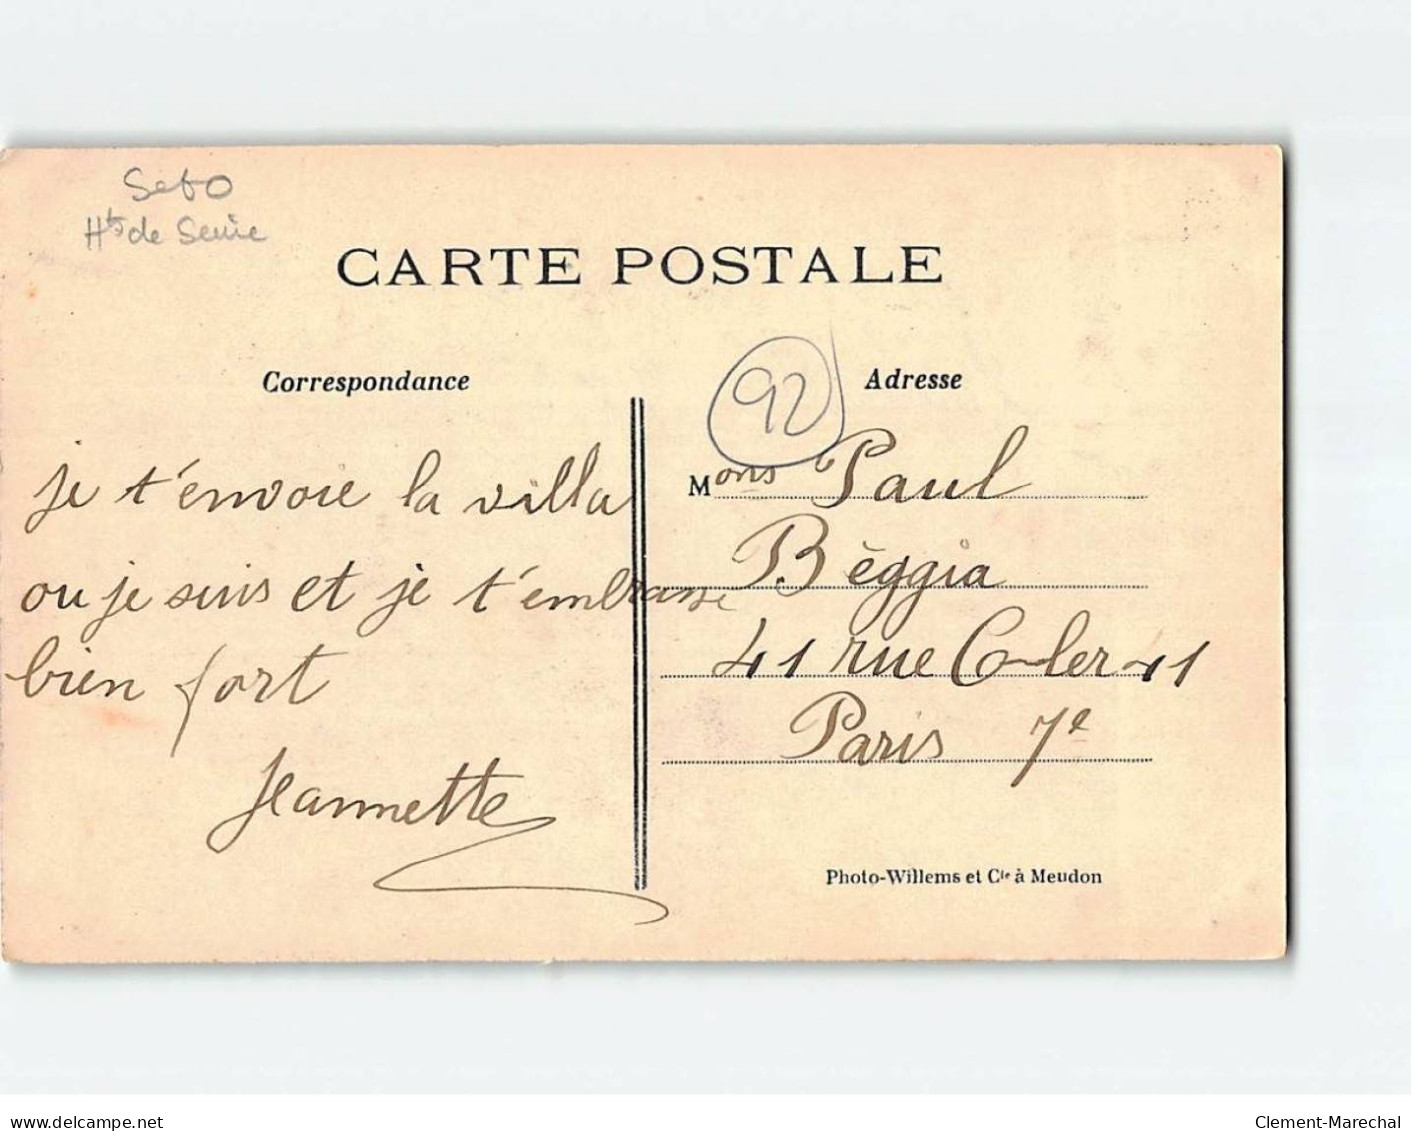 S et O
Hts de Seine
CARTE POSTALE
Correspondance
92
Adresse
je t'envoie la villa
ou je suis et je t'embrasse
bien fort
Jeannette
Mons Paul
Béggia
41 rue Cler 41
Paris 7e
Photo-Willems et Cie à Meudon
www.delcampe.net
Clement-Marechal